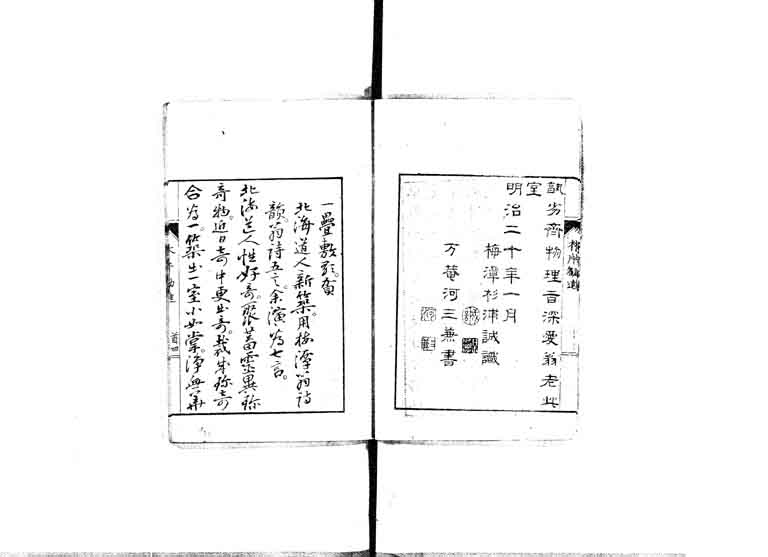 齊物理言深愛翁老此
室
明治二十年一月
梅潭杉浦誠識
万菴河三兼書
一疊敷歌。賀
北海道人新築。用梅潭翁詩
韻。翁詩五言。余演為七言。
北海道人性好奇。聚蓄霊異珍
奇物。近日奇中更出奇。珍奇
合為一。築出一室小如掌。浄無華